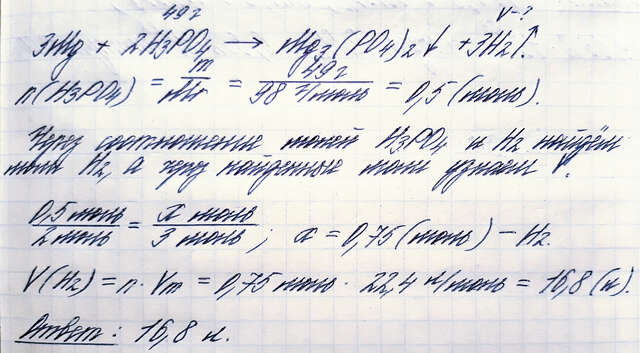 49 г V-?
3Mg + 2H3PO4 → Mg3(PO4)2↓ + 3H2↑.
n(H3PO4) = m/Mr = 49 г/98 г/моль = 0,5 (моль).
Через соотношение молей H3PO4 и H2 найдём
моль H2, а через найденные моли узнаем V.
0,5 моль/2 моль = x моль/3 моль; x = 0,75 (моль) – H2.
V(H2) = n · Vm = 0,75 моль · 22,4 л/моль = 16,8 (л).
Ответ: 16,8 л.